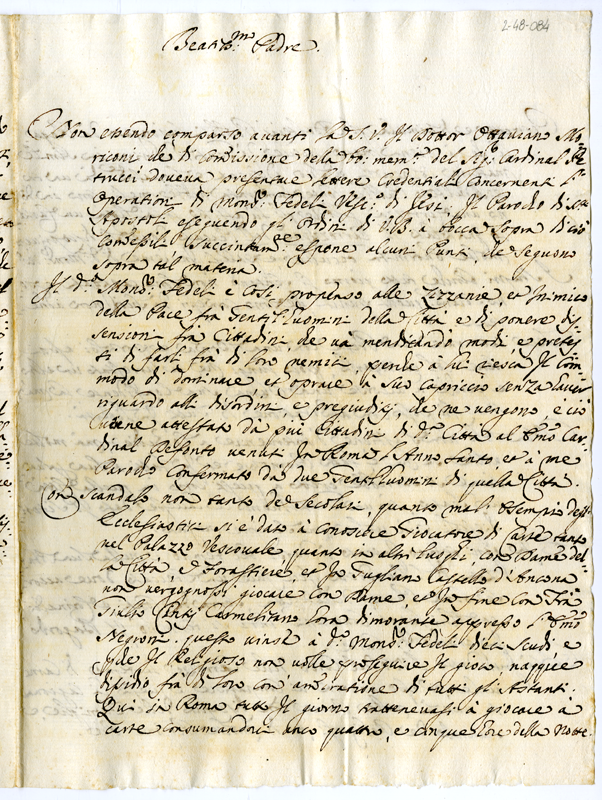 2-48-084
Beatis.mo Padre.
Non essendo comparso avanti la S. V. Il Dottor Ottaviano Mo
riconi che di Commissione della fe: mem.a del Sig.r Cardinal Pe
trucci doveva presentare lettere Credentiali Concernenti l'
Operationi di Mons.r Fedeli Vesc.o di Jesi; Il Parocho di SS.
Apostoli eseguendo gl'Ordini di V.B. à bocca sopra di ciò
succintam.te espone alcuni Punti che seguono
sopra tal materia.
Il d.o Mons.r Fedeli è così propenso alle Zizzanie, et Inimico
della Pace frà Gentilhuomini della Città e di ponere dis
sensioni frà Cittadini, che và mendicando modi, e pretes
ti di farli frà di loro nemici, perche à lui riesca Il Com
modo di dominare et oprare à suo Capriccio senza haver
riguardo alli disordini, e pregiuditij, che ne vengono, e ciò
viene attestato da più Cittadini di d.a Città al Em.o Car
dinal Defonto venuti In Roma l'Anno Santo, et à me
Parocho Confermato da due Gentilhuomini di quella Città.
Con Scandalo non tanto de Secolari, quanto mal'Esempio dell'
Ecclesiastici si è dato à Conoscere Giocatore di Carte tanto
nel Palazzo Vescovale quanto in altri luoghi, con Dame del
la Città, e Forastiere, et In Castello d'Ancona
non vergognossi giocare con Dame, et In fine con Frà
Carmelitano hora dimorante appresso l'Em.o
Negroni. questo vinse à d.o Mons.r Fedeli dieci Scudi e
Il Religioso non volle proseguire Il gioco nacque
disidio frà di loro con amiratione di tutti gl'Astanti.
Qui in Roma tutto Il giorno trattenevasi à giocare à
Carte consumandoci anco quattro, e cinque hore della Notte.